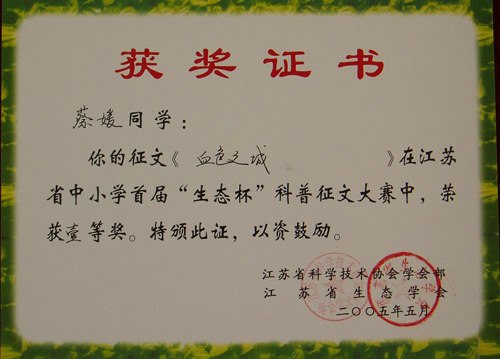 获奖证书
蔡媛同学：
你的征文《血色之城》在江苏
省中小学首届“生态杯”科普征文大赛中，荣
获壹等奖。特颁此证，以资鼓励。
江苏省科学技术协会学会部
江苏省生态学会
二〇〇五年五月